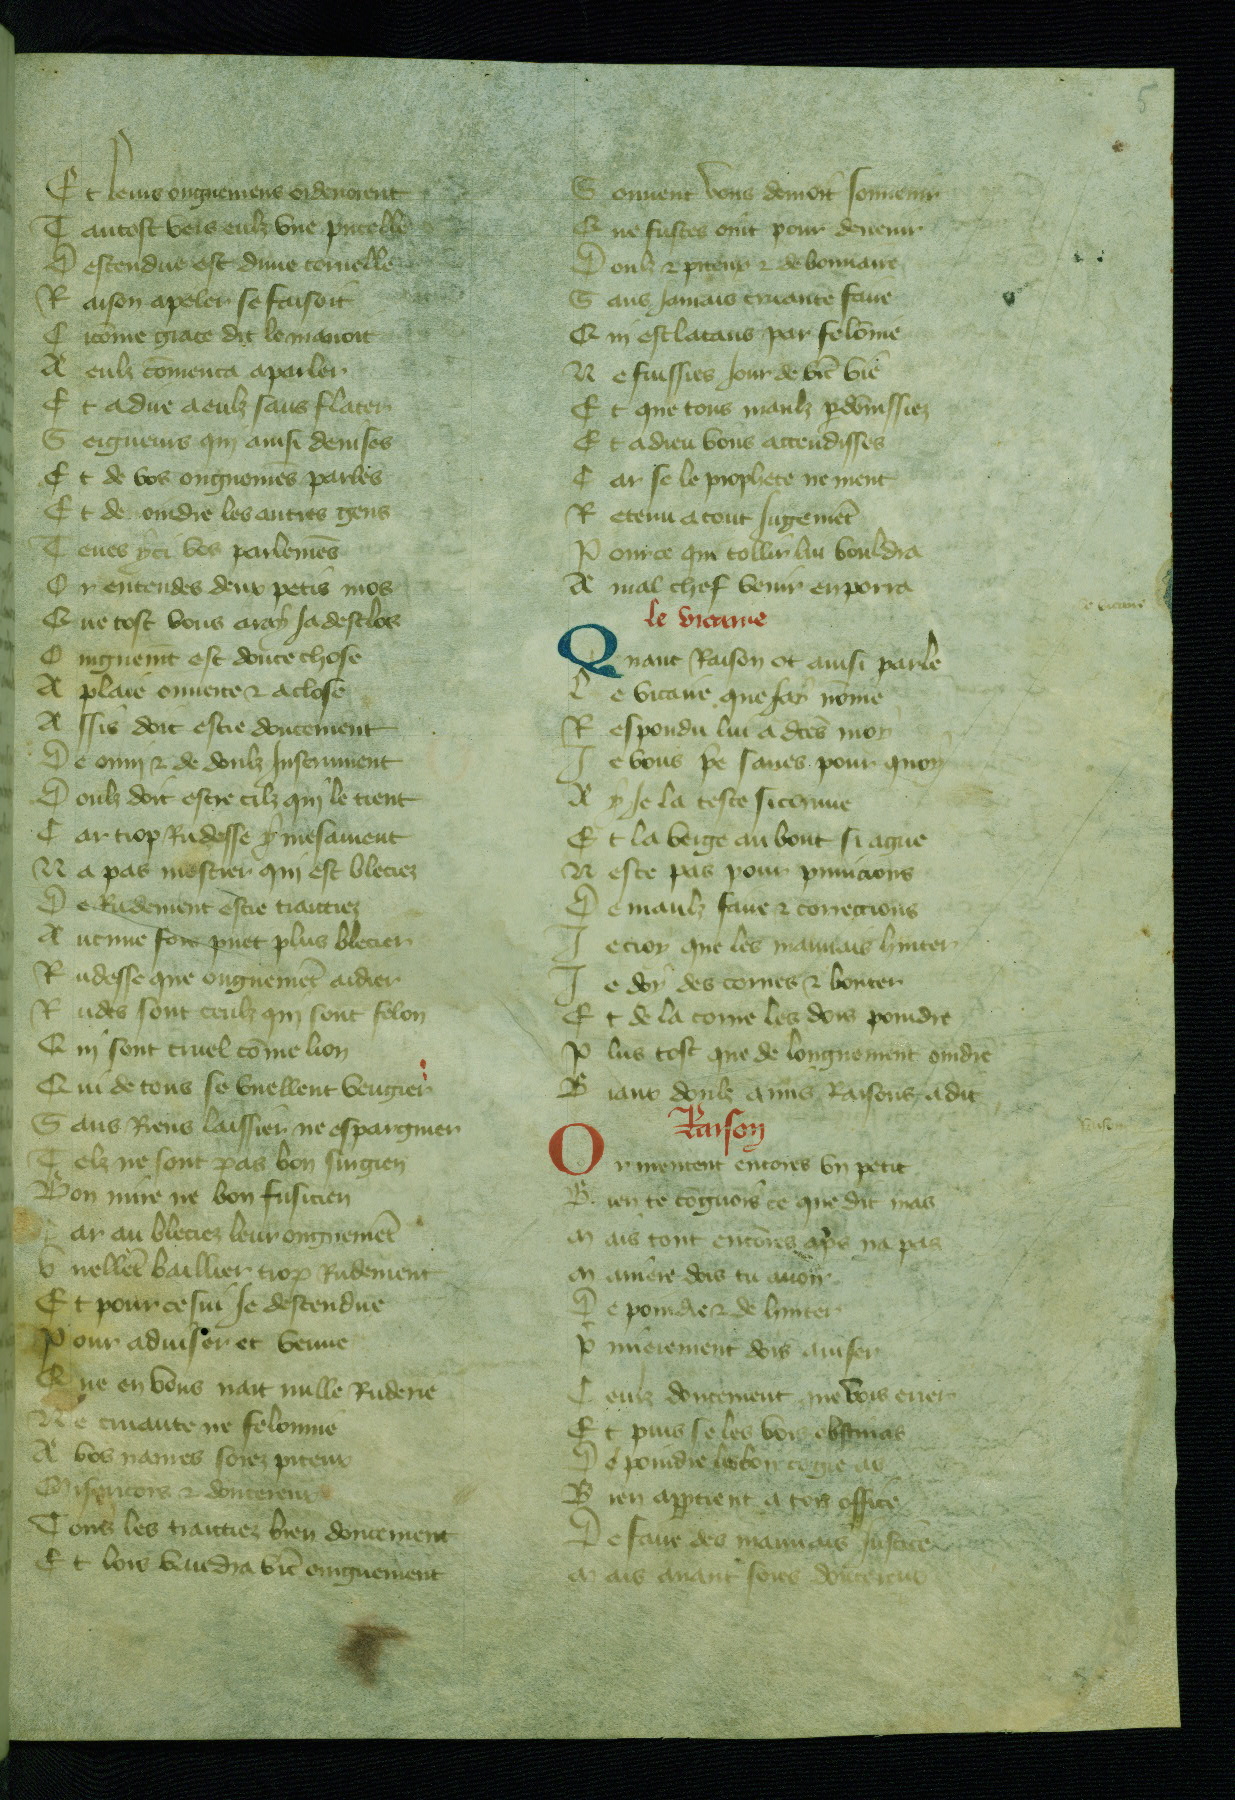 5
Et leurs ongnemens ordenoient
Tantost vers eulz vne pucelle
Descendue est dune tornelle
Raison apeler se faisoit
Cicōme grace dit le mauoit
A eulz cōmenca a parler
Et a due a eulz sans flater
Seigneurs qui ainsi deuises
Et de vos ongnemēs parles
Et de oindre les autres gens
Tenes yci vos parlemēs
Or entendes deux petis mos
Que tost vous aray ja desclos
Oingnemt est douce chose
A plaie ouuerte ⁊ a close
Assis doit estre doucement
De oini ⁊ de doulz Instrument
Doulz doit estre cilz qui le tient
Car trop Rudesse y mesauient
Na pas mestier qui est bleciez
De Rudement estre traitiez
Aucune fois puet plus blecier
Rudesse que ongnemēt aidier
Rudes sont ceulz qui sont felon
Qui sont cruel cōme lion
Qui de tous se vuellent vengier
Sans Riens laissier ne espargnier
Telz ne sont pas bon surgien
Bon mire ne bon fusicien
Car au bleciez leur ongnemēt
Vuellēt baillier trop Rudement
Et pour ce sui Je descendue
Pour aduiser et venue
Que en vous nait nulle Rudece
Ne cruaute ne felonnie
A vos naures soiez piteux
Misericors ⁊ doucereux
Tous les traitiez bien doucement
Et lors vauldra vrē oingnement
Souuent vous deuroit souuenir
Que fustes oint pour deuenir
Doulz ⁊ piteux ⁊ debonnaire
Sans Jamais cruaute faire
Qui est latans par felōnie
Ne fuissies Jour de vrē vie
Et que tous maulz pdōnissiez
Et a dieu vous attendisses
Car se le prophete ne ment
Retenu a tout Jugemēt
Pour ce qui tollir lui vouldra
A mal chef venir en porra
le vicaire
Quant Raison ot ainsi parle
Le vicaire que Jay nōme
Respondu lui a dtes moy
Je vous pe saues pour quoy
Ay Je la teste si cornue
Et la verge au bout si ague
Neste pas pour punicions
De maulz faire ⁊ corrections
Je croy que les mauuais hurter
Je doy des cornes ⁊ bouter
Et de la corne les dois poindre
Plus tost que de longnement oindre
Biaux doulz amis Raisons a dit
Raison
Or mentent encores vn petit
Bien te congnois ce que dit mas
Mais tout encores aps na pas
Maniere dois tu auoir
De poindre ⁊ de hurter
Pmierement dois auiser
Ceulz doucement que vois errer
Et puis se les vois obstinas
De poindre les loy congie as
Bien apptient a ton office
De faire des mauuais Justice
Mais auant soies doucereux